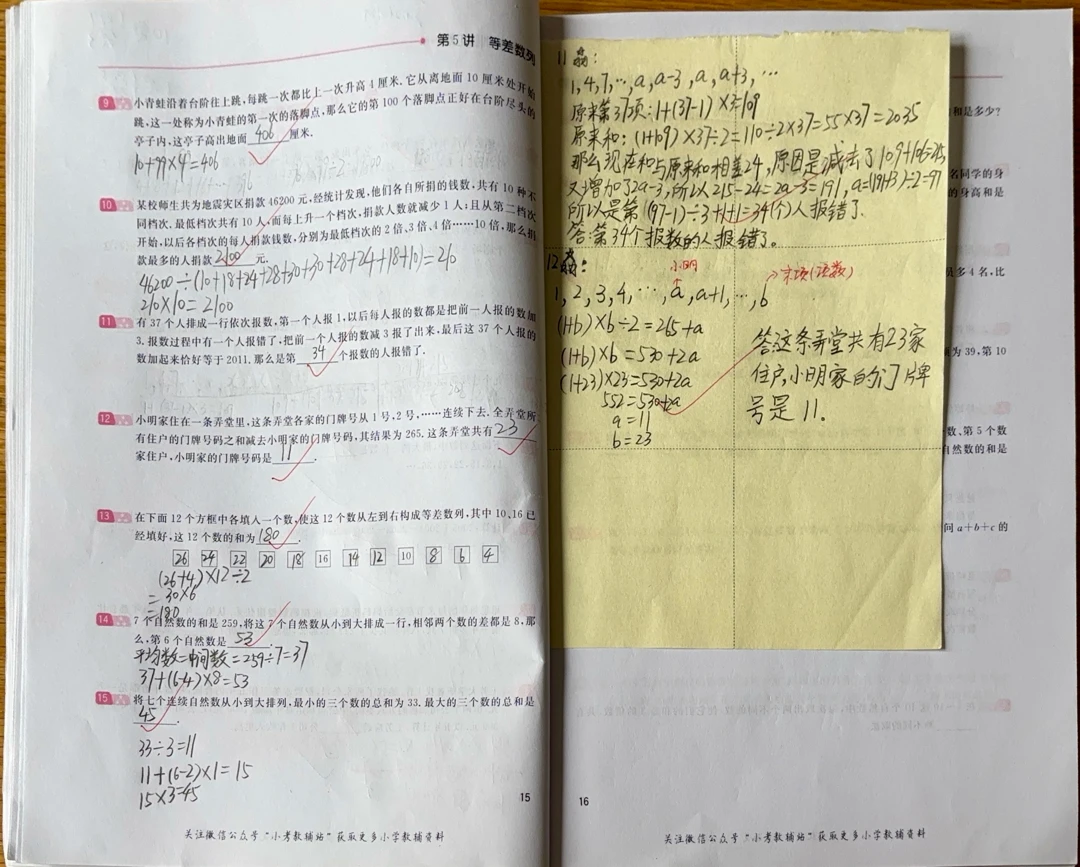 第5讲 等差数列
9 小青蛙沿着台阶往上跳,每跳一次都比上一次升高4厘米.它从离地面10厘米处开始
跳,这一处称为小青蛙的第一次的落脚点,那么它的第100个落脚点正好在台阶尽头的
亭子内,这亭子高出地面 406 厘米.
10+99×4=406
10 某校师生共为地震灾区捐款46200元,经统计发现,他们各自所捐的钱数,共有10种不
同档次.最低档次共有10人,而每上升一个档次,捐款人数就减少1人;且从第二档次
开始,以后各档次的每人捐款钱数,分别为最低档次的2倍、3倍、4倍……10倍,那么捐
款最多的人捐款 2100 元.
46200÷(10+18+24+28+30+30+28+24+18+10)=210
210×10=2100
11 有37个人排成一行依次报数,第一个人报1,以后每人报的数都是把前一人报的数加
3.报数过程中有一个人报错了,把前一个人报的数减3报了出来,最后这37个人报的
数加起来恰好等于2011.那么是第 34 个报数的人报错了.
12 小明家住在一条弄堂里,这条弄堂各家的门牌号从1号,2号,……连续下去.全弄堂所
有住户的门牌号码之和减去小明家的门牌号码,其结果为265.这条弄堂共有 23
家住户,小明家的门牌号码是 11 .
13 在下面12个方框中各填入一个数,使这12个数从左到右构成等差数列,其中10、16已
经填好,这12个数的和为 180 .
26 24 22 20 18 16 14 12 10 8 6 4
(26+4)×12÷2
=30×6
=180
14 7个自然数的和是259,将这7个自然数从小到大排成一行,相邻两个数的差都是8,那
么,第6个自然数是 53 .
平均数=中间数=259÷7=37
37+(6-4)×8=53
15 将七个连续自然数从小到大排列,最小的三个数的总和为33.最大的三个数的总和是
45 .
33÷3=11
11+(6-2)×1=15
15×3=45
15
关注微信公众号“小考教辅站”获取更多小学教辅资料
11题:
1,4,7,…,a,a-3,a,a+3,…
原来第37项:1+(37-1)×3=109
原来和:(1+109)×37÷2=110÷2×37=55×37=2035
那么现在和与原来和相差24,原因是减去了109+106=215
又增加了2a-3,所以215-24=2a-3=191,a=(191+3)÷2=97
所以是第(97-1)÷3+1+1=34(个)人报错了.
答:第34个报数的人报错了。
12题:
小明
末项(项数)
1,2,3,4,…,a,a+1,…,b
(1+b)×b÷2=265+a
(1+b)×b=530+2a
(1+23)×23=530+2a
552=530+2a
a=11
b=23
答这条弄堂共有23家
住户,小明家的门牌
号是11.
和是多少?
名同学的身
的身高和是
是多4名,比
为39,第10
数、第5个数
自然数的和是
问a+b+c的
16
关注微信公众号“小考教辅站”获取更多小学教辅资料